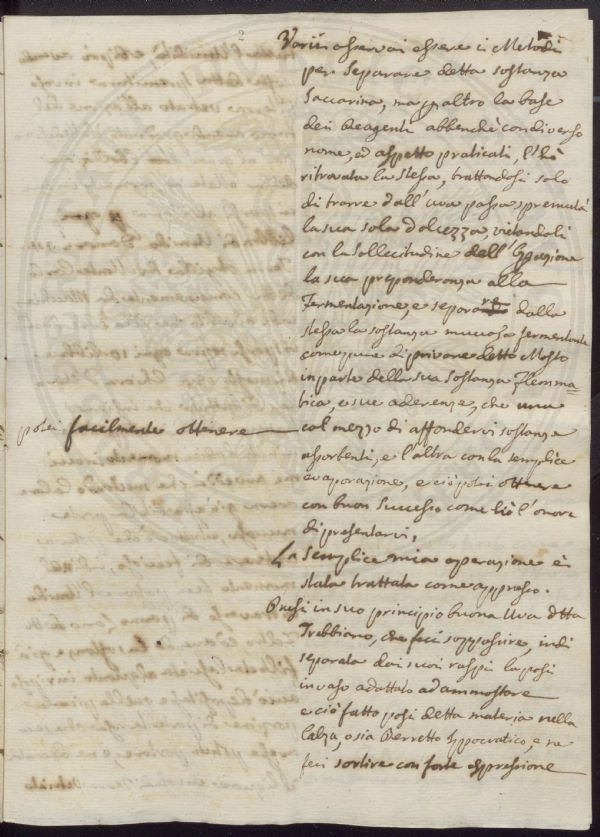 2
Varii osservai essere i Metodi
per Separare detta sostanza
Saccarina, ma p altro la base
dei Reagenti abbenchè con diverso
nome, ed aspetto praticati, l'hò
ritrovata la stessa, trattandosi solo
di trarre dall'uva passa spremuta
la sua sola dolcezza, vietandoli
con la Sollecitudine dell'
la sua preponderanza alla
Fermentazione, e separare dalla
stessa la sostanza mucosa fermentante
come pure di privare detto Mosto
in parte della sua Sostanza Flemma=
tica, e sue aderenze, che una
col mezzo di affondervi sostanze
assorbenti, e l'altra con la semplice
evaporazione, e ciò potei ottenere
potei facilmente ottenere
con buon Successo come hò l'onore
di presentarvi,
La Semplice mia operazione è
stata trattata come appresso.
Presi in suo principio buona Uva dtta
Trebbiano, che feci soppassire, indi
separata dai suoi raspi la posi
in vaso adattato ad ammostare
e ciò fatto posi detta materia nella
Calza, o sia Berretto Ippocratico, e ne
feci sortire con forte espressione